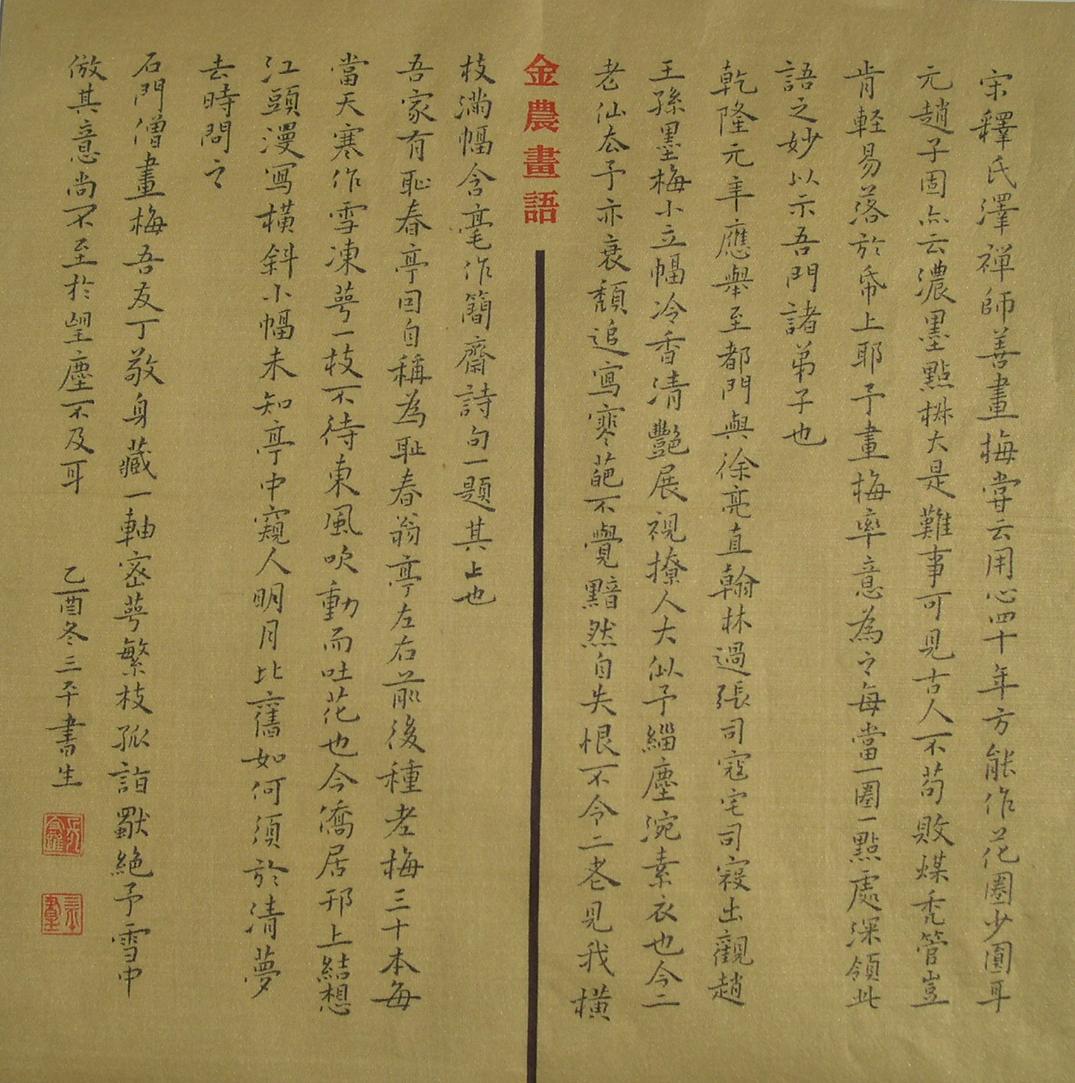 宋釋氏澤禪師善畫梅嘗云用心四十年方能作花圈少圓耳
元趙子固亦云濃墨點椒大是難事可見古人不苟敗煤禿管豈
肯軽易落於帋上耶予畫梅率意為之每當一圈一點處深領此
語之妙以示吾門諸弟子也
乾隆元年應舉至都門與徐亮直翰林過張司寇宅司寇出觀趙
王孫墨梅小立幅冷香清艷展視撩人大似予緇塵涴素衣也今二
老仙去予亦衰頹追寫寒葩不覺黯然自失恨不令二老見我橫
金農畫語
枝滿幅含毫作簡齋詩句一題其上也
吾家有恥春亭因自稱為恥春翁亭左右前後種老梅三十本每
當天寒作雪凍萼一枝不待東風吹動而吐花也今僑居邗上結想
江頭漫寫橫斜小幅未知亭中窺人明月比舊如何須於清夢
去時問之
石門僧畫梅吾友丁敬身藏一軸密萼繁枝孤詣獨絕予雪中
倣其意尚不至於望塵不及耳
乙酉冬三平書生